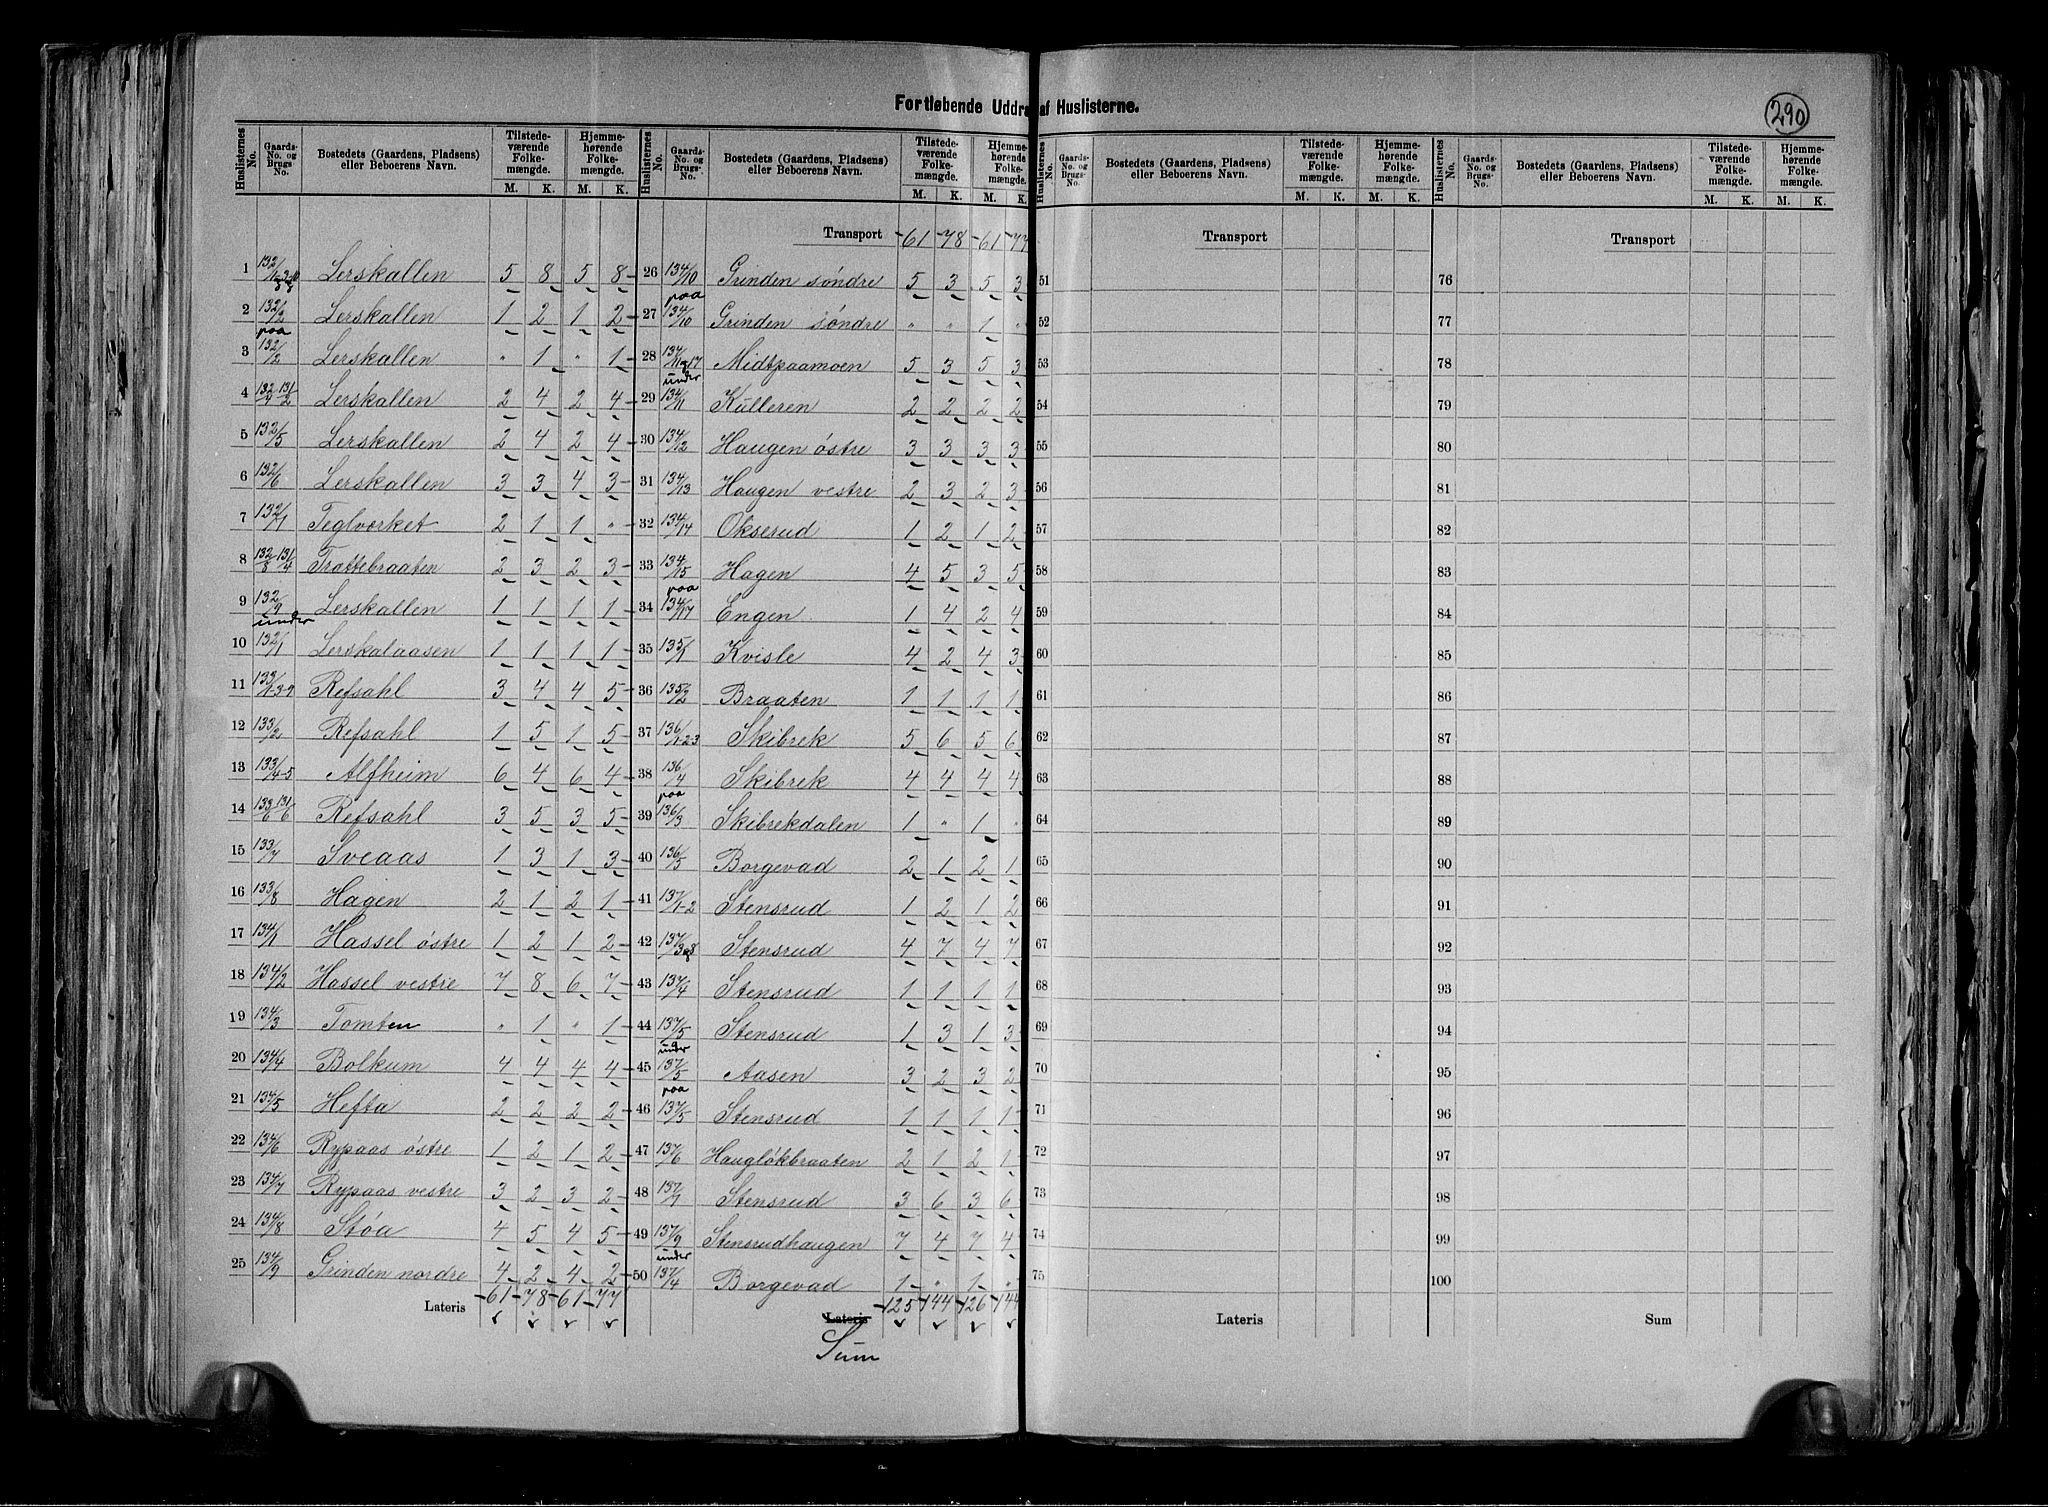 Fortløbende Uddra af Huslisterne.
290
Huslisternes No. Gaards-No. og Brugs-No. Bostedets (Gaardens, Pladsens) eller Beboerens Navn. Tilstede-værende Folke-mængde. M. K. Hjemme-hørende Folke-mængde. M. K.
1 132/ Lerskallen 5 8 5 8
2 132/2 Lerskallen 1 2 1 2
3 paa 132/2 Lerskallen " 1 " 1
4 132/4 131/2 Lerskallen 2 4 2 4
5 132/5 Lerskallen 2 4 2 4
6 132/6 Lerskallen 3 3 4 3
7 132/7 Teglværket 2 1 1 "
8 132/8 131/4 Trættebraaten 2 3 2 3
9 132/9 Lerskallen 1 1 1 1
10 under 132/1 Lerskalaasen 1 1 1 1
11 133/1-3-9 Refsahl 3 4 4 5
12 133/2 Refsahl 1 5 1 5
13 133/4-5 Alfheim 6 4 6 4
14 133/6 131/6 Refsahl 3 5 3 5
15 133/7 Sveaas 1 3 1 3
16 133/8 Hagen 2 1 2 1
17 134/1 Hassel østre 1 2 1 2
18 134/2 Hassel vestre 7 8 6 7
19 134/3 Tomten " 1 " 1
20 134/4 Bolkum 4 4 4 4
21 134/5 Hefta 2 2 2 2
22 134/6 Rypaas østre 1 2 1 2
23 134/7 Rypaas vestre 3 2 3 2
24 134/8 Støa 4 5 4 5
25 134/9 Grinden nordre 4 2 4 2
Lateris 61 78 61 77
Huslisternes No. Gaards-No. og Brugs-No. Bostedets (Gaardens, Pladsens) eller Beboerens Navn. Tilstede-værende Folke-mængde. M. K. Hjemme-hørende Folke-mængde. M. K.
Transport 61 78 61 77
26 134/10 Grinden søndre 5 3 5 3
27 paa 134/10 Grinden søndre " " 1 "
28 134/11 og 17 Midtpaamoen 5 3 5 3
29 under 134/11 Kulleren 2 2 2 2
30 134/12 Haugen østre 3 3 3 3
31 134/13 Haugen vestre 2 3 2 3
32 134/14 Okserud 1 2 1 2
33 134/15 Hagen 4 5 3 5
34 paa 134/17 Engen 1 4 2 4
35 135/1 Kvisle 4 2 4 3
36 135/2 Braaten 1 1 1 1
37 136/1-2-3 Skibrek 5 6 5 6
38 136/4 Skibrek 4 4 4 4
39 paa 136/3 Skibrekdalen 1 " 1 "
40 136/5 Borgevad 2 1 2 1
41 137/1-2 Stensrud 1 2 1 2
42 137/3 og 8 Stensrud 4 7 4 7
43 137/4 Stensrud 1 1 1 1
44 137/5 Stensrud 1 3 1 3
45 under 137/5 Aasen 3 2 3 2
46 paa 137/5 Stensrud 1 1 1 1
47 137/6 Hauglökbraaten 2 1 2 1
48 137/7 Stensrud 3 6 3 6
49 137/9 Stensrudhaugen 7 4 7 4
50 under 137/4 Borgevad 1 " 1 "
Lateris 125 144 126 144
Sum
Huslisternes No. Gaards-No. og Brugs-No. Bostedets (Gaardens, Pladsens) eller Beboerens Navn. Tilstede-værende Folke-mængde. M. K. Hjemme-hørende Folke-mængde. M. K.
Transport
51
52
53
54
55
56
57
58
59
60
61
62
63
64
65
66
67
68
69
70
71
72
73
74
75
Lateris
Huslisternes No. Gaards-No. og Brugs-No. Bostedets (Gaardens, Pladsens) eller Beboerens Navn. Tilstede-værende Folke-mængde. M. K. Hjemme-hørende Folke-mængde. M. K.
Transport
76
77
78
79
80
81
82
83
84
85
86
87
88
89
90
91
92
93
94
95
96
97
98
99
100
Sum